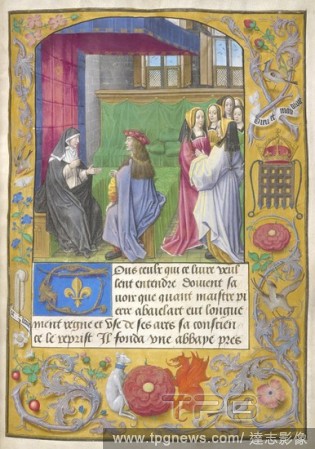 Dieu et mon droit
Ous ceulx qui ce liure veul
lent entendre Doiuent sa
uoir que quant maistre pi
erre abaelart eut longue
ment regne et vse de ses ars sa conscien
ce le reprist Il fonda vne abbaye pres
TPG
www.tpgnews.com/ 達志影像